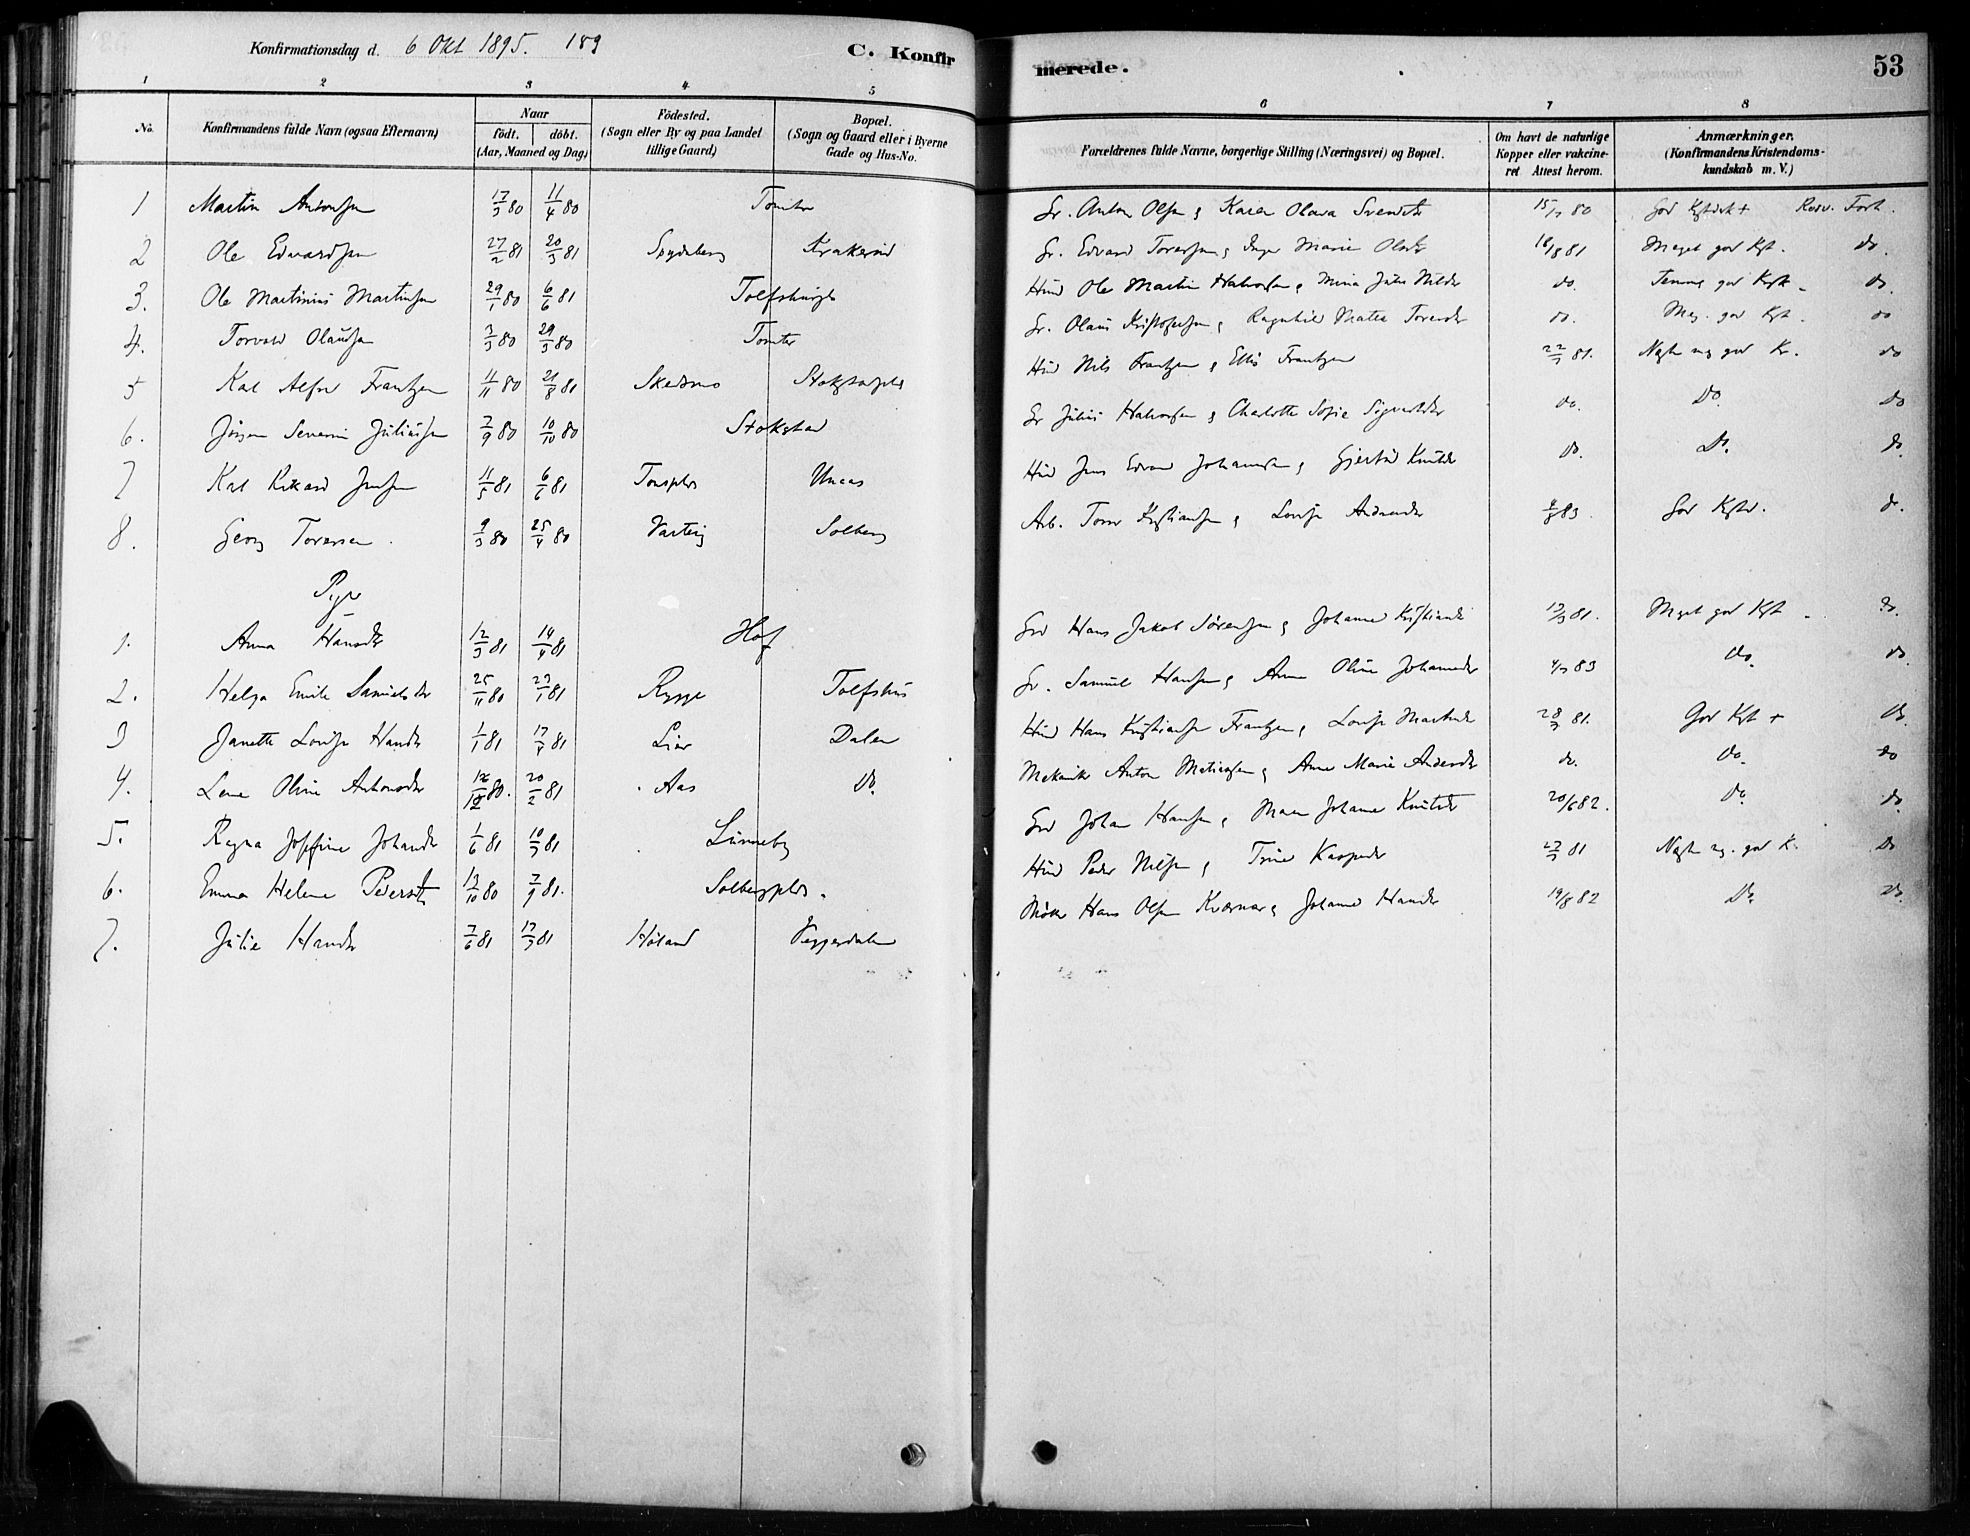 Konfirmationsdag d. 6 Okt 1895. 189
C. Konfir
merede.
53
1 2 3 4 5 6 7 8
No. Konfirmandens fulde Navn (ogsaa Efternavn) Naar födt. döbt. (Aar, Maaned og Dag) Födested. (Sogn eller By og paa Landet tillige Gaard) Bopæl. (Sogn og Gaard eller i Byerne Gade og Hus-No. Forældrenes fulde Navne, borgerlige Stilling (Næringsvei) og Bopæl. Om havt de naturlige Kopper eller vakcineret Attest herom. Anmærkninger. (Konfirmandens Kristendomskundskab m. V.)
1 Martin Antonsen 17/3 80 11/4 80 Tomter Gr. Anton Olsen & Karen Olava Svendsdtr 80 Rosv. Forh.
2 Ole Edvardsen 27/2 81 20/3 81 Spydeberg Krakerud Gr. Edvard Toresen & Inger Marie Olsdtr 18/8 81 Meget god Kst. do.
3. Ole Martinius Martinsen 29/1 80 6/6 81 Hūsd Ole Martin Halvorsen & Mina Julie Nilsdtr do. Temme. god Kst. do.
4. Torvald Olausen 3/3 80 29/3 80 Tomter Gr. Olaus Kristofersen & Ragnhild Matea Toresdtr do. Meg. god Kst. do
5 Karl Alfred Frantzen 11/11 80 21/8 81 Skedsmo Hūsd Nils Frantzen & Ellis Frantzen 22/3 81. do
6. Jörgen Severin Juliussen 7/9 80 10/10 80 Stokstad Gr Julius Halvorsen & Charlotte Sofie Sigvaldsdtr do. Do. do
7 Karl Rikard Jensen 11/5 81 6/6 81 Unaas Hūsd Jens Edvard Johannesen & Gjertrud Knutsdtr do. Do. do.
8. Georg Toresen. 9/3 80 25/4 80 Varteig Solberg Arb. Tore Kristiansen & Lovise Andersdtr 83. God Kstd. do.
Piger
1. Anna Hansdtr 12/3 81 14/4 81 Hof Grd Hans Jakob Sørensen & Johanne Kristiansd 81. Meget god Kst. do.
2. Helga Emilie Samuelsdtr 25/11 80 23/1 81 Rygge Tolfshus Gr. Samuel Hansen & Anne Oline Johannesdtr 83 do. do.
3 Janette Lovise Hansdtr 1/1 81 17/4 81 Lier Dalen Hūsd Hans Kristiansen Frantzen & Lovise 28/3 81. God Kst + do.
4. Lena Oline Antonsdtr 80. 20/2 81 Aas Do. Mekanik Anton Mathiesen & Anne Marie Andersdtr do. Do. do
5. Ragna Josefine Johansdtr 1/6 81 10/3 81 Lunneby Grd Johan Hansen & Maren Johanne Knutsdtr 20/6 82. Do. do.
6. Emma Helene Pedersdtr 13/10 80 7/9 81. Solbergplds. Hūsd Peder Nilsen & Trine Kaspersdtr 23/3 81 do
7. Julie Hansdtr 7/6 81 17/3 81 Høland Møller Hans Olsen Kværner & Johanne Hansdtr 19/8 82 Do. do.